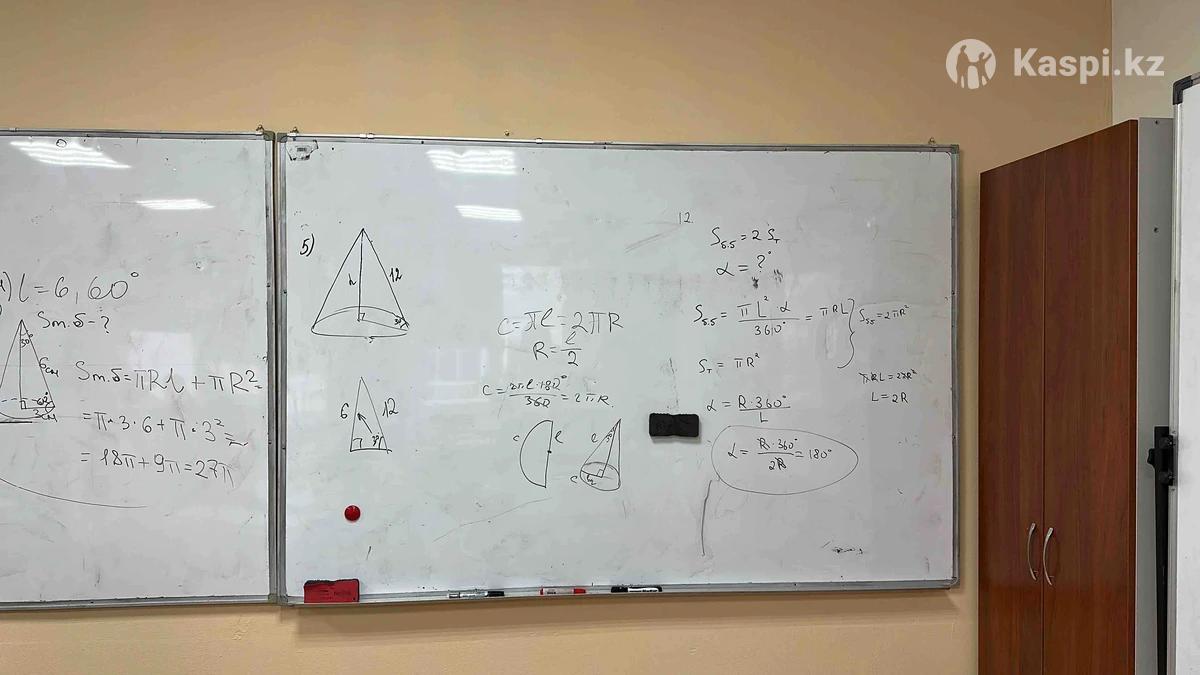 Kaspi.kz
l=6, 60°
Sт.б-?
30°
60°
Sт.б=πRl+πR²=
=π·3·6+π·3²=
=18π+9π=27π
5)
h
12
6
12
C=πl=2πR
R=l/2
C=2πl·180°/360=2πR
c
l
l
c
12
Sб.б=2Sт
α=?°
Sб.б=πL²α/360°=πRL
Sб.б=2πR²
Sт=πR²
πRL=2πR²
L=2R
α=R·360°/L
α=R·360°/2R=180°